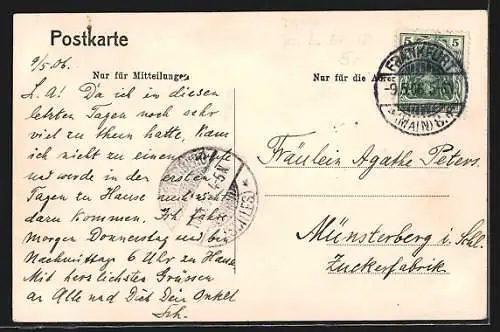 Postkarte
9/5.06.
Nur für Mitteilungen
L. A! Da ich in diesen
letzten Tagen noch sehr
viel zu thun hatte, kam
ich nicht zu einem
und werde in der ersten
Tagen zu Hause
dazu kommen. Ich fahre
morgen Donnerstag und bin
Nachmittags 6 Uhr zu Hause
Mit herzlichsten Grüssen
an Alle und Dich Dein Onkel
Sch.
Nur für die Adresse
5 5
FRANKFURT
-9.5.06.5-6N
(MAIN)
4-5N
Fräulein Agathe Peters
Münsterberg i. Schl.
Zuckerfabrik